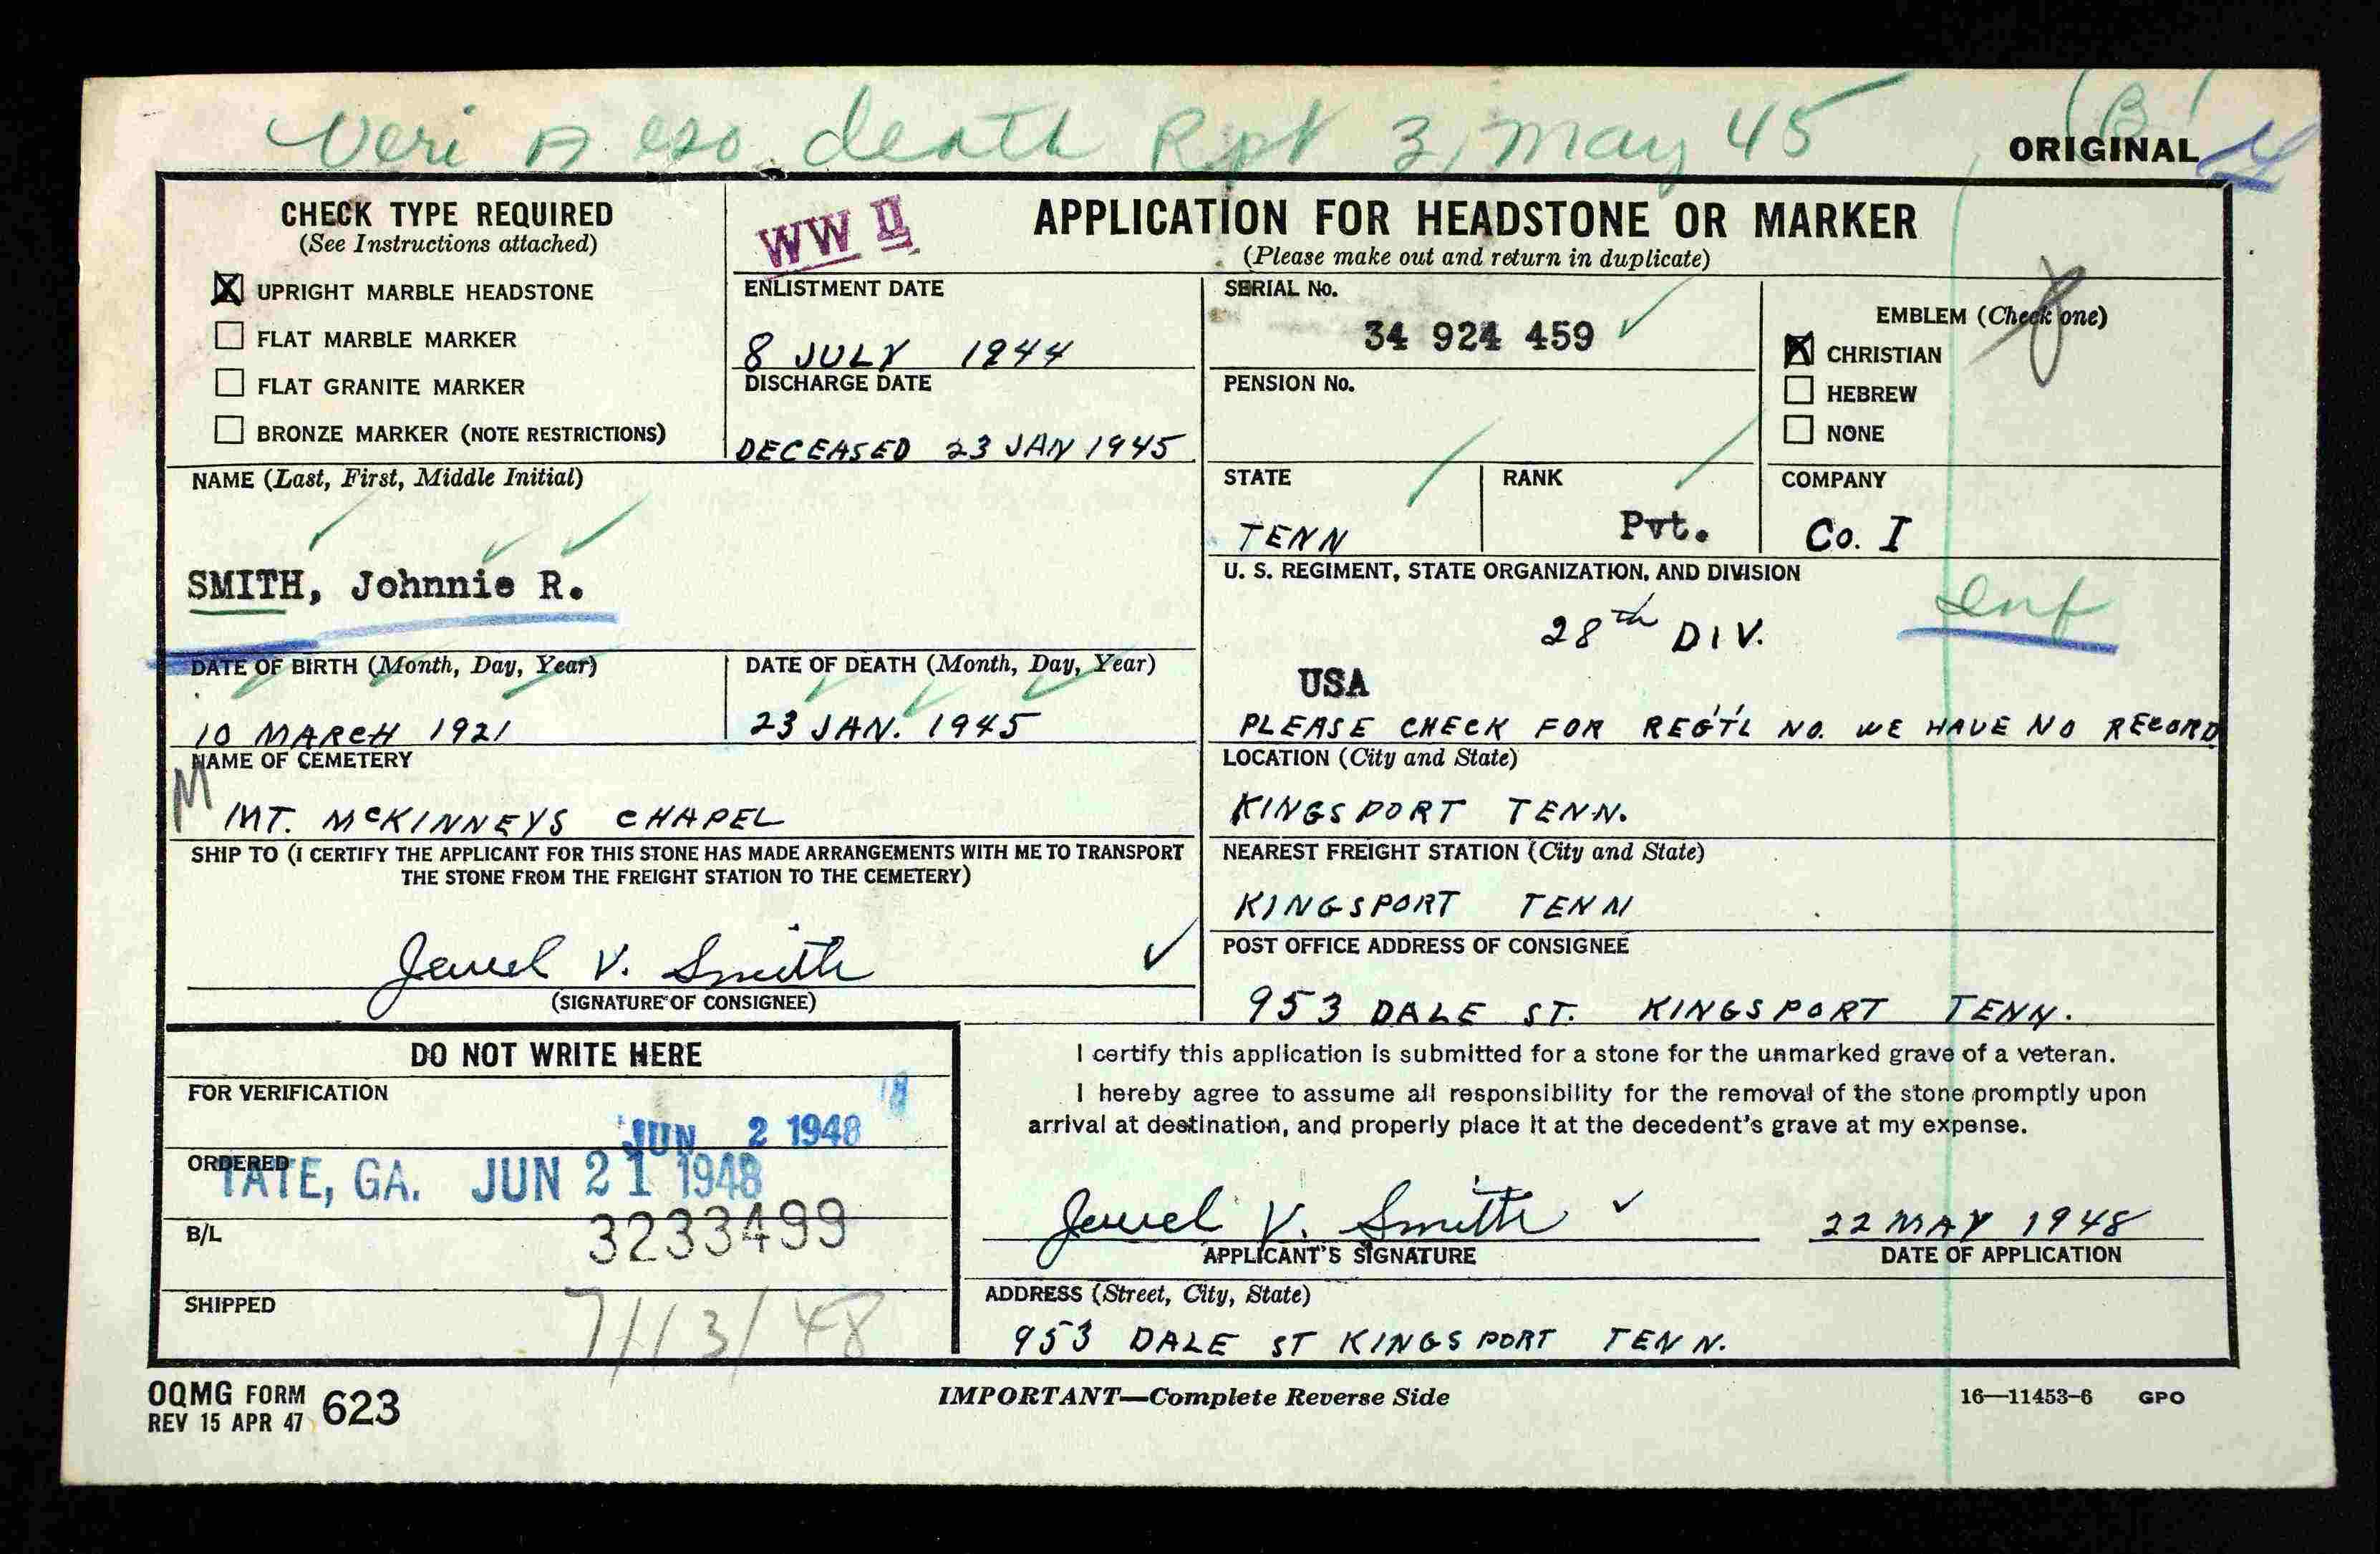 Veri death Rpt 3, May 45
(B)
ORIGINAL
CHECK TYPE REQUIRED
(See Instructions attached)
X UPRIGHT MARBLE HEADSTONE
FLAT MARBLE MARKER
FLAT GRANITE MARKER
BRONZE MARKER (NOTE RESTRICTIONS)
WW II
APPLICATION FOR HEADSTONE OR MARKER
(Please make out and return in duplicate)
ENLISTMENT DATE
8 JULY 1944
DISCHARGE DATE
DECEASED 23 JAN 1945
SERIAL No.
34 924 459
PENSION No.
EMBLEM (Check one)
X CHRISTIAN
HEBREW
NONE
NAME (Last, First, Middle Initial)
SMITH, Johnnie R.
STATE
TENN
RANK
Pvt.
COMPANY
Co. I
U. S. REGIMENT, STATE ORGANIZATION, AND DIVISION
Inf
28th DIV.
USA
PLEASE CHECK FOR REG'T'L NO. WE HAVE NO RECORD
DATE OF BIRTH (Month, Day, Year)
10 MARCH 1921
DATE OF DEATH (Month, Day, Year)
23 JAN. 1945
NAME OF CEMETERY
M
MT. McKINNEYS CHAPEL
LOCATION (City and State)
KINGSPORT TENN.
SHIP TO (I CERTIFY THE APPLICANT FOR THIS STONE HAS MADE ARRANGEMENTS WITH ME TO TRANSPORT
THE STONE FROM THE FREIGHT STATION TO THE CEMETERY)
Jewel V. Smith
(SIGNATURE OF CONSIGNEE)
NEAREST FREIGHT STATION (City and State)
KINGSPORT TENN
POST OFFICE ADDRESS OF CONSIGNEE
953 DALE ST. KINGSPORT TENN.
DO NOT WRITE HERE
FOR VERIFICATION
JUN 2 1948
18
ORDERED
TATE, GA. JUN 21 1948
B/L
3233499
SHIPPED
7/13/48
I certify this application is submitted for a stone for the unmarked grave of a veteran.
I hereby agree to assume all responsibility for the removal of the stone promptly upon
arrival at destination, and properly place it at the decedent's grave at my expense.
Jewel V. Smith
APPLICANT'S SIGNATURE
22 MAY 1948
DATE OF APPLICATION
ADDRESS (Street, City, State)
953 DALE ST KINGSPORT TENN.
OQMG FORM 623
REV 15 APR 47
IMPORTANT—Complete Reverse Side
16—11453-6 GPO